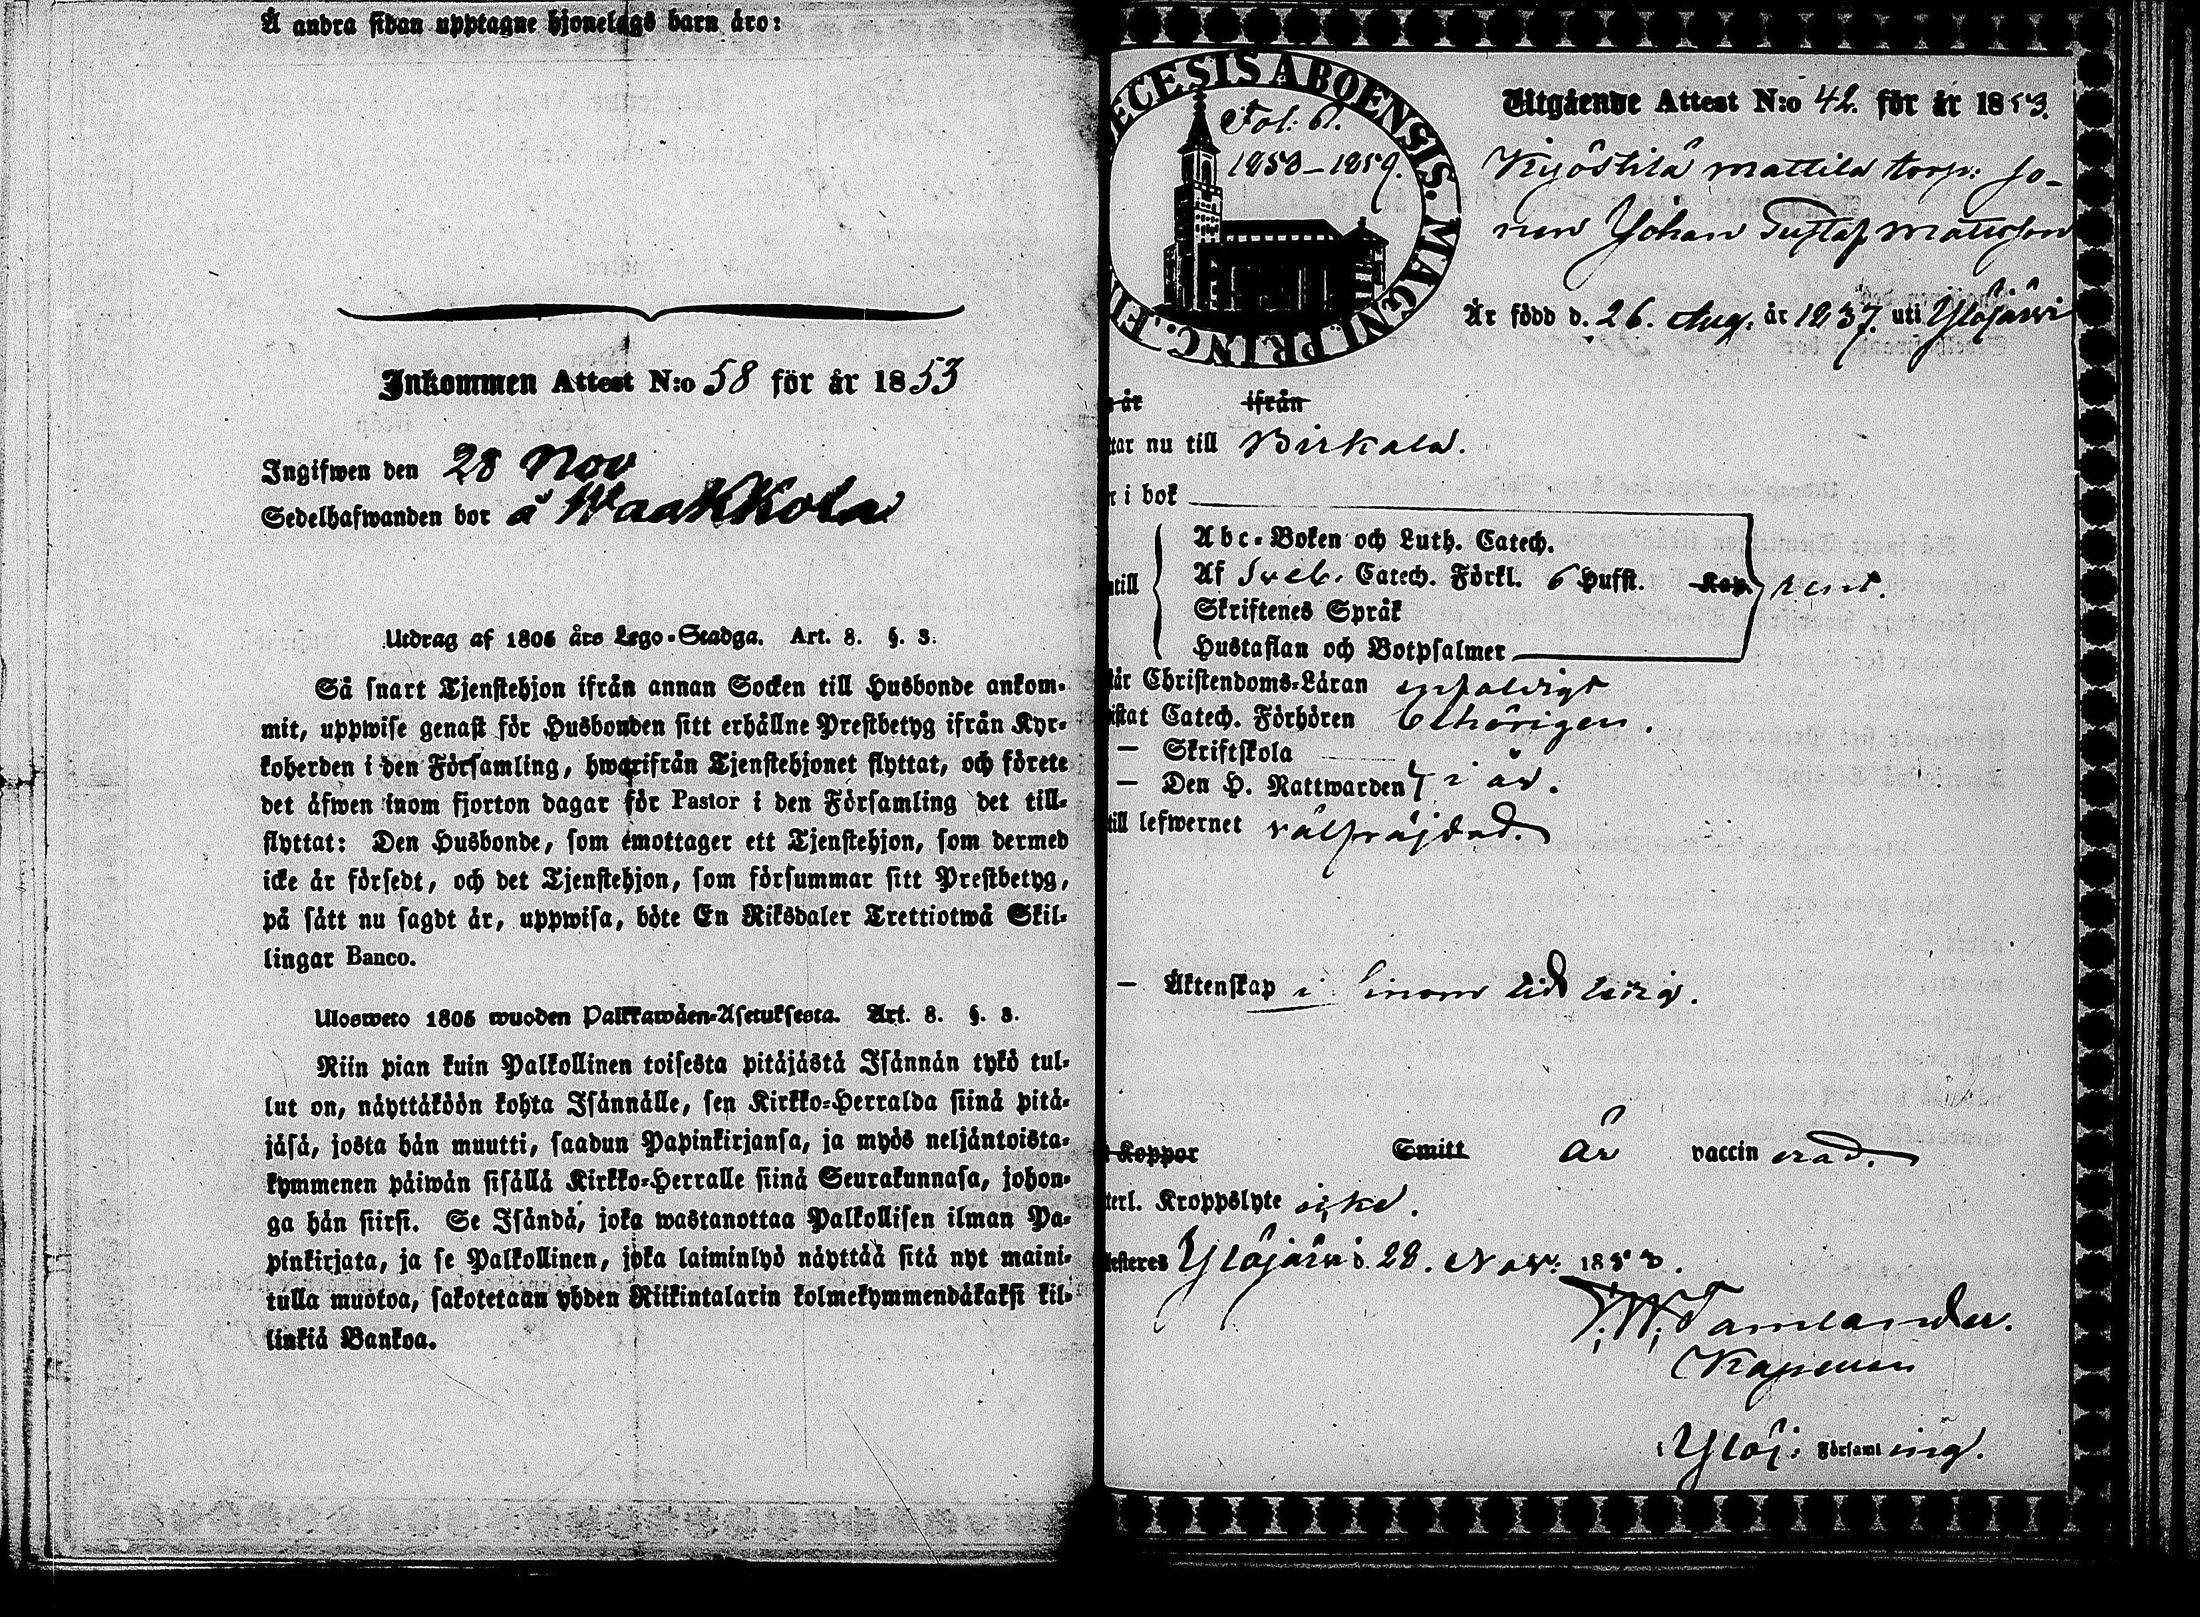 Å andra sidan upptagne hjonelags barn äro:
Inkommen Attest N:o 58 för år 1853
Ingifwen den 28 Nov
Sedelhafwanden bor å Waakkola
Utdrag af 1805 års Lego-Stadga. Art. 8. §. 3.
Så snart Tjenstehjon ifrån annan Socken till Husbonde ankom-
mit, uppwise genast för Husbonden sitt erhållne Prestbetyg ifrån Kyr-
koherden i den Församling, hwarifrån Tjenstehjonet flyttat, och förete
det äfwen inom fjorton dagar för Pastor i den Församling det till-
flyttat: Den Husbonde, som emottager ett Tjenstehjon, som dermed
icke är försedt, och det Tjenstehjon, som försummar sitt Prestbetyg,
på sätt nu sagdt är, uppwisa, böte En Riksdaler Trettiotwå Skil-
lingar Banco.
Ulosweto 1805 wuoden Palkkawäen-Asetuksesta. Art. 8. §. 3.
Niin pian kuin Palkollinen toisesta pitäjästä Isännän tykö tul-
lut on, näyttäköön kohta Isännälle, sen Kirkko-Herralda siinä pitä-
jäsä, josta hän muutti, saadun Papinkirjansa, ja myös neljäntoista-
kymmenen päiwän sisällä Kirkko-Herralle siinä Seurakunnasa, johon-
ga hän siirsi. Se Isändä, joka wastanottaa Palkollisen ilman Pa-
pinkirjata, ja se Palkollinen, joka laiminlyö näyttää sitä nyt maini-
tulla muotoa, sakotetaan yhden Riikintalarin kolmekymmendäkaksi kil-
linkiä Bankoa.
ECESIS ABOENSIS. MAGNI. PRINC. FI
Fol: 61.
1853–1859.
Utgående Attest N:o 42. för år 1853.
Kyöstilä Mattila torp: so-
nen Johan Gustaf Matsson
Är född d. 26. Aug. år 1837. uti Ylöjärvi
år ifrån
tar nu till Birkala.
r i bok
Abc-Boken och Luth. Catech.
till Af Sveb. Catech. Förkl. 6 Hufst. Kap. rent.
Skriftenes Språk
Hustaflan och Botpsalmer
tår Christendoms-Läran enfaldigt
istat Catech. Förhören behörigen.
— Skriftskola
— Den H. Nattwarden i år.
till lefwernet välfräjdad.
— Äktenskap i sinom tid ledig.
Koppor Smitt är vaccinerad.
terl. Kroppslyte icke.
testeres Ylöjärvi d. 28. Nov: 1853.
Tamlander.
Kapellan
i Ylöj: Församling.